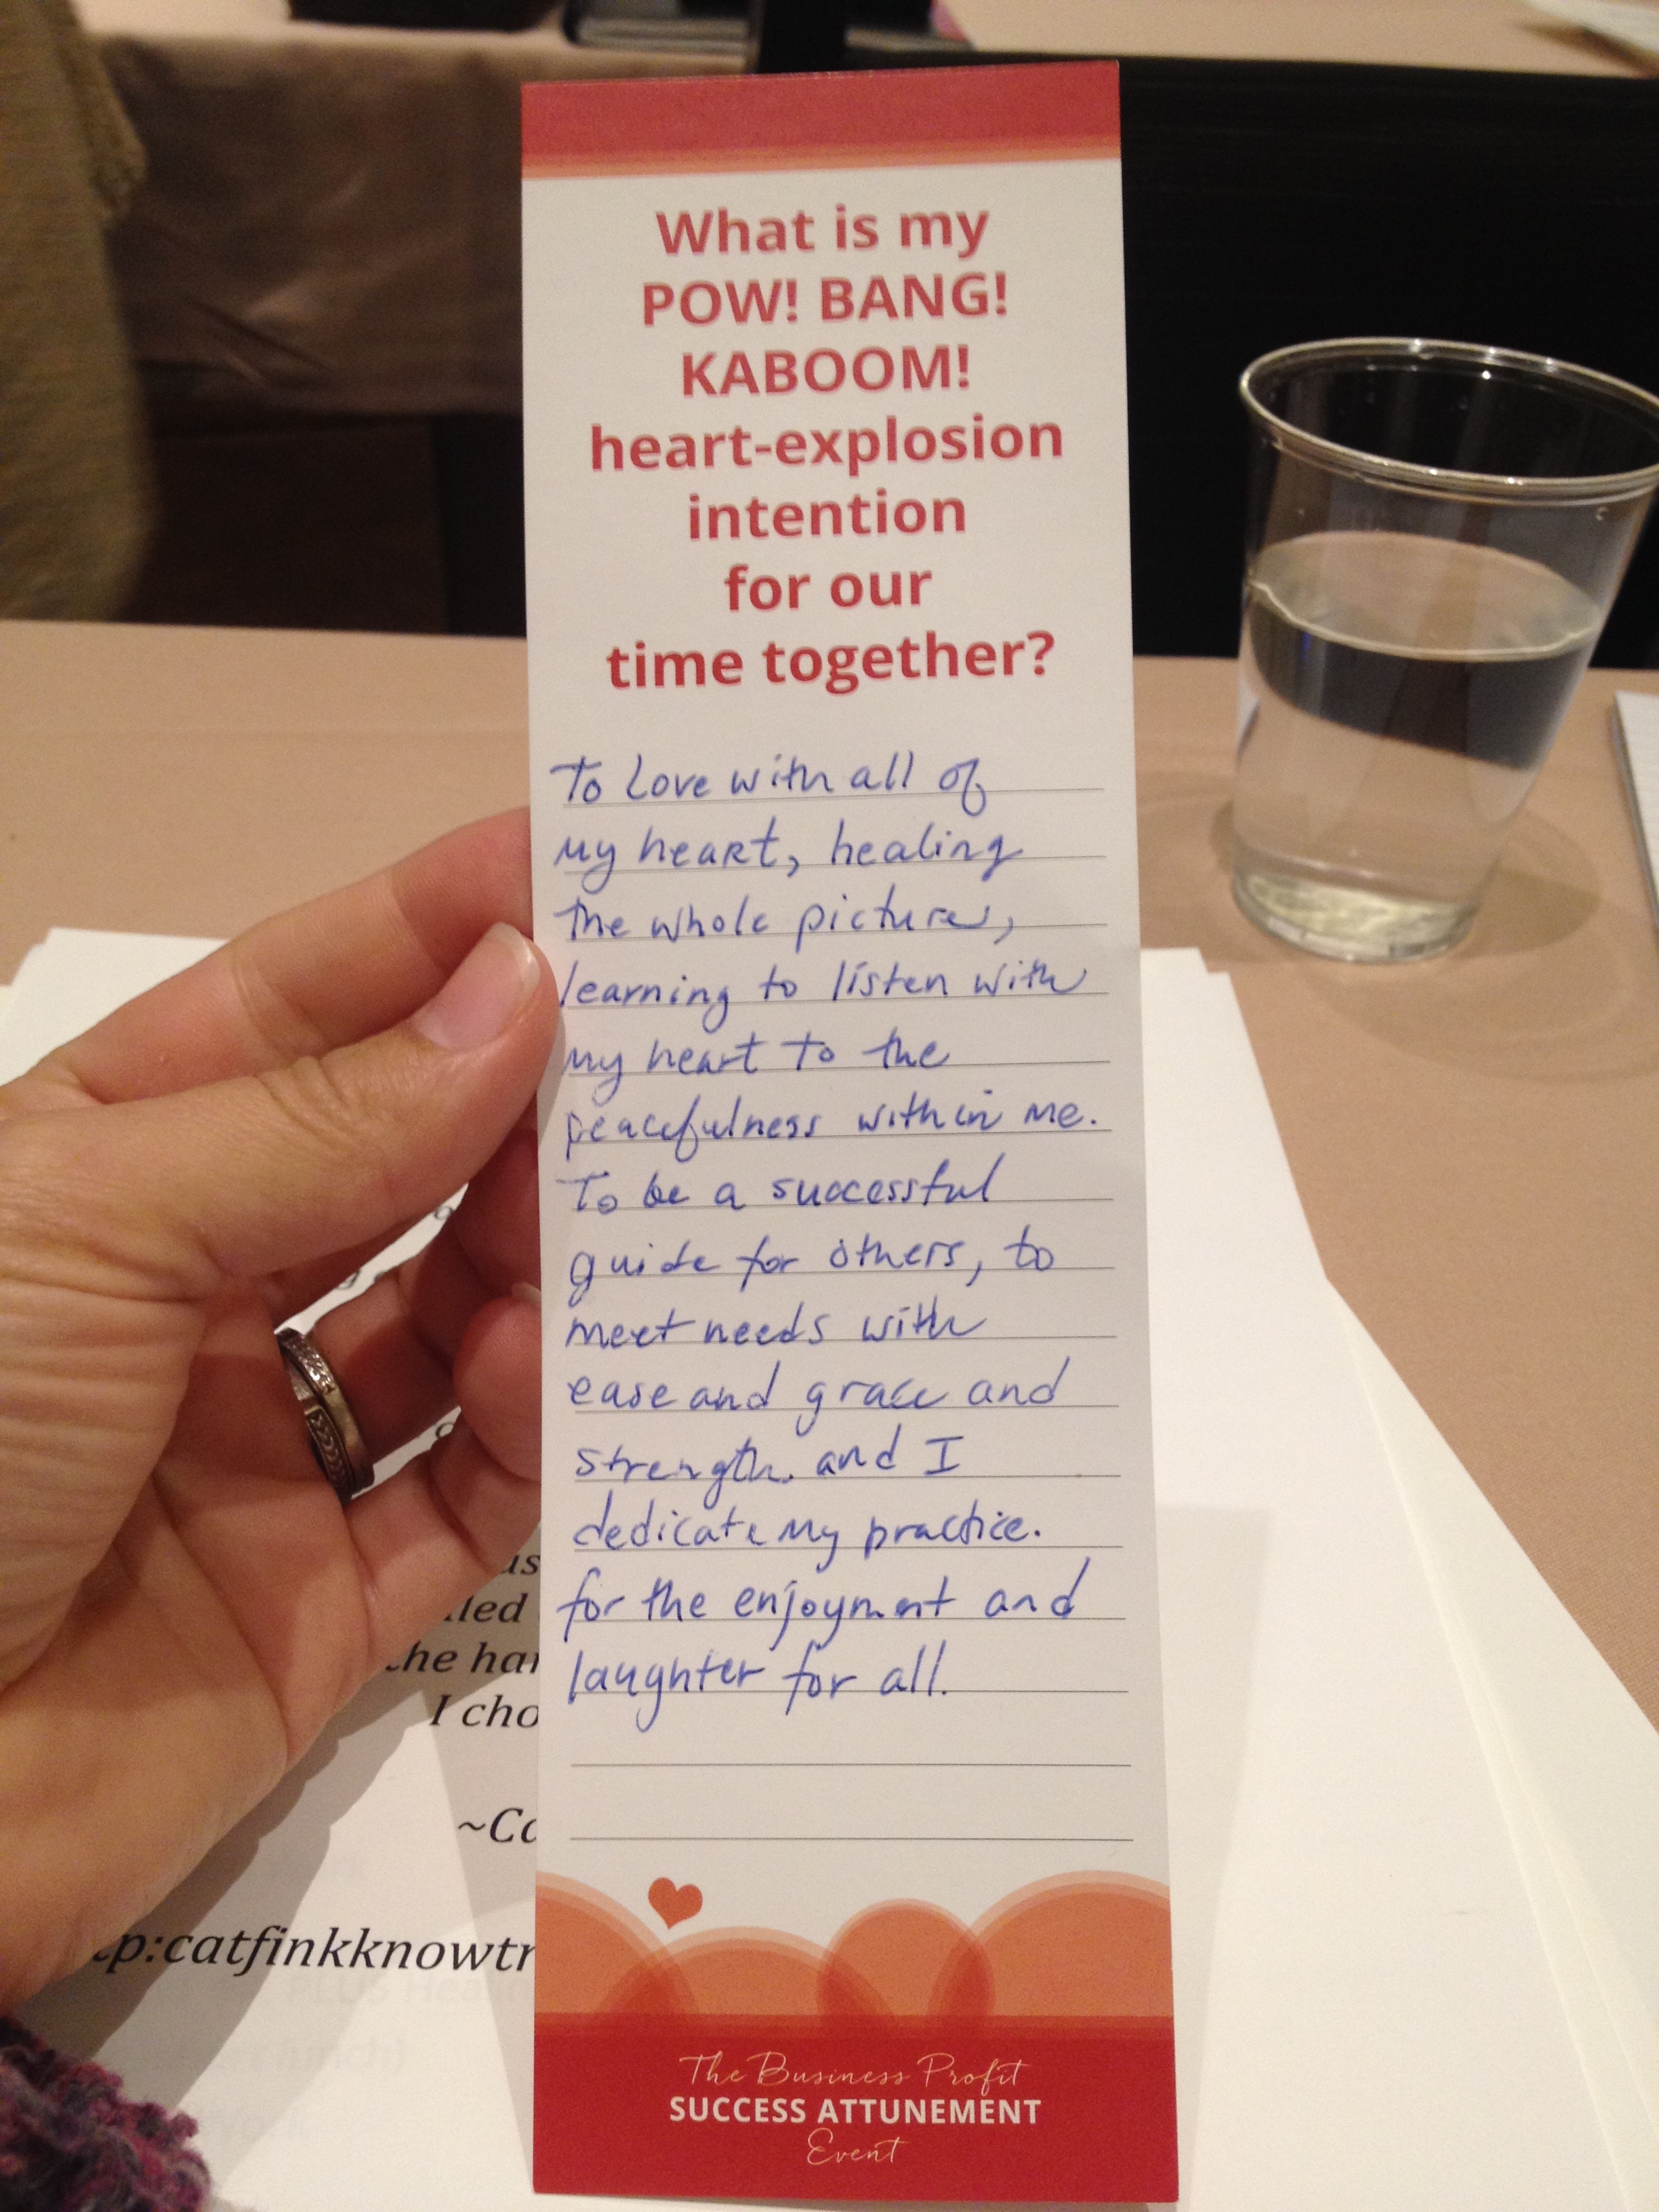 What is my
POW! BANG!
KABOOM!
heart-explosion
intention
for our
time together?
To Love with all of
my heart, healing
the whole picture,
learning to listen with
my heart to the
peacefulness within me.
To be a successful
guide for others, to
meet needs with
ease and grace and
strength. and I
dedicate my practice.
for the enjoyment and
laughter for all.
led
he har
I cho
~Ca
p:catfinkknowtr
The Business Profit
SUCCESS ATTUNEMENT
Event